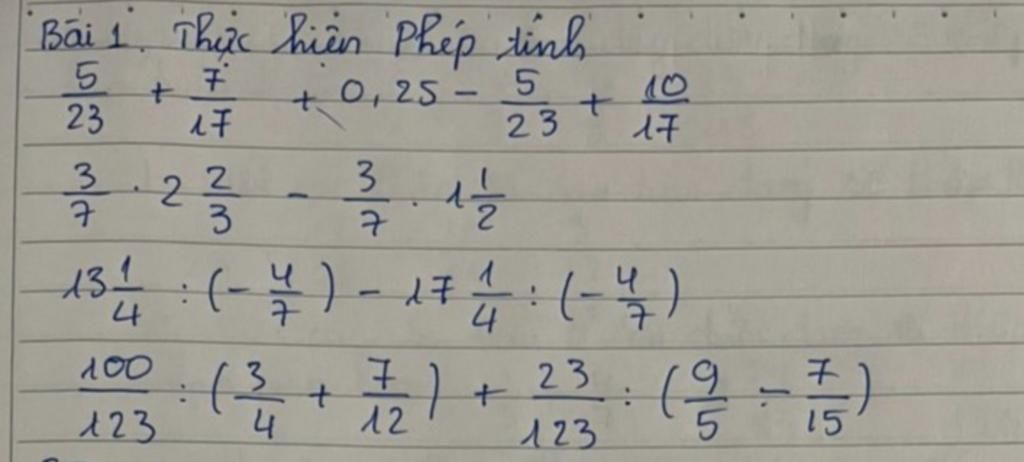 Bài 1. Thực hiện Phép tính
5/23 + 7/17 + 0,25 - 5/23 + 10/17
3/7 . 2 2/3 - 3/7 . 1 1/2
13 1/4 : (- 4/7) - 17 1/4 : (- 4/7)
100/123 : (3/4 + 7/12) + 23/123 : (9/5 - 7/15)